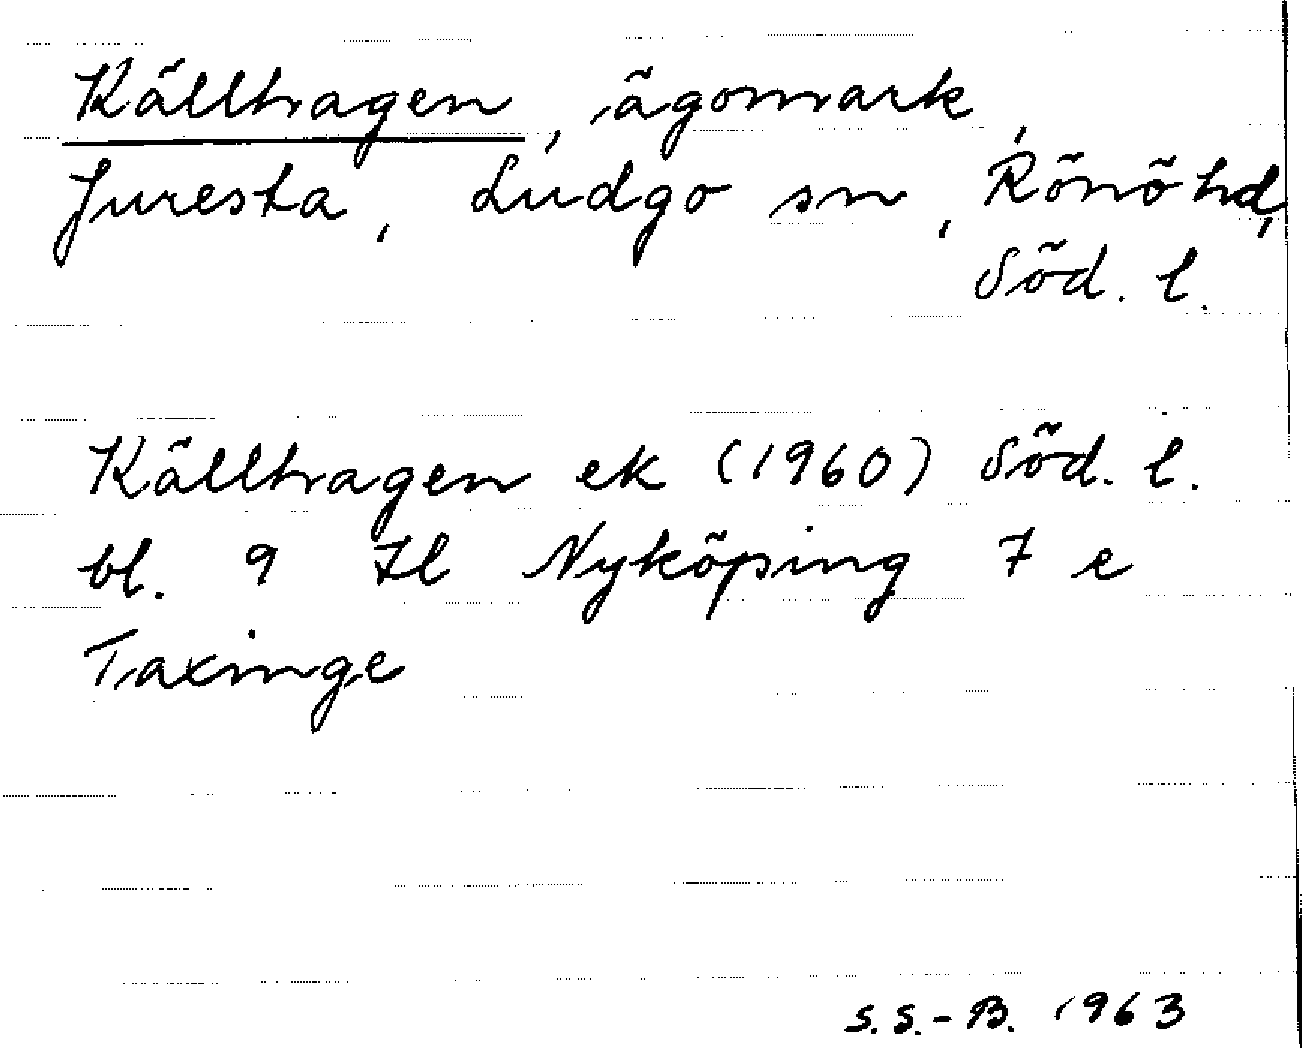 Källhagen, ägomark,
Juresta, Ludgo sn, Rönö hd,
Söd. l.
Källhagen ek (1960) Söd. l.
bl. 9 Il Nyköping 7 e
Taxinge
S.S.-B. 1963